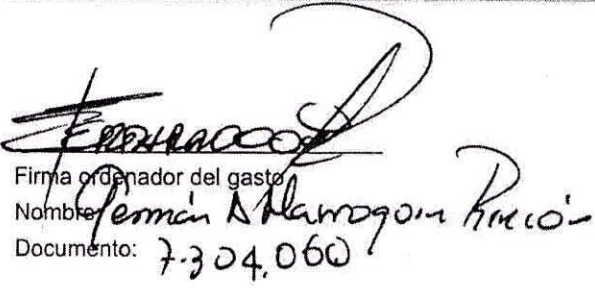 Firma ordenador del gasto
Nombre Germán A Marroquin Rincón
Documento: 7.304.060